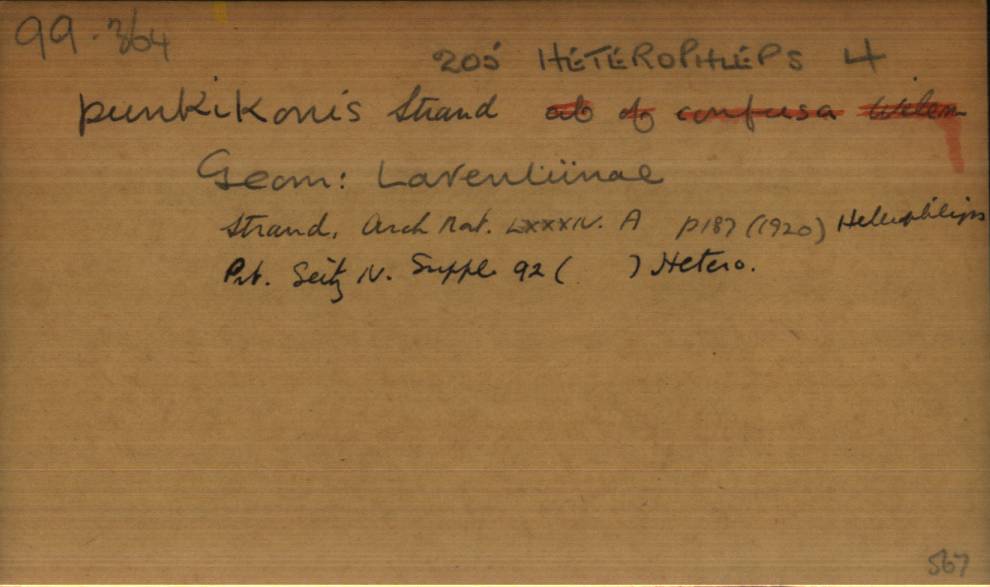 99.364
205 HETEROPHLEPS 4
punkikonis Strand ab of confusa Wilem
Geom: Larentiinae
Strand, Arch Nat. LXXXIV. A p187 (1920) Heterophleps
Prt. Seitz IV. Suppl. 92 ( ) Hetero.
567